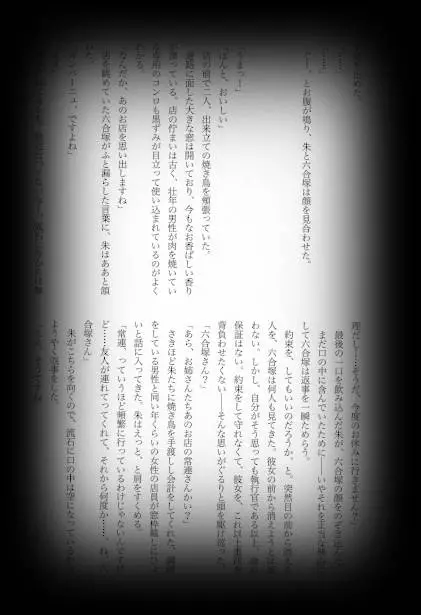 止めた
て……
」
……。とお腹が鳴り、朱と六合塚は顔を見合わせた。
うまっ！」
ほんと、おいしい」
店の前で二人、出来立ての焼き鳥を頬張っていた。
道路に面した大きな窓は開いており、今もなお香ばしい香り
漂っている。店の佇まいは古く、壮年の男性が肉を焼いてい
場所のコンロも黒ずみが目立って使い込まれているのがよく
わかる。
なんだか、あのお店を思い出しますね」
を眺めていた六合塚がふと漏らした言葉に、朱はああと顔
た。
ンパーニュ、ですよね」
理だし……そうだ、今度のお休みに行きません？」
最後の一口を飲み込んだ朱が、六合塚の顔をのぞき
まだ口の中に含んでいたために――いやそれを
して六合塚は返事を一瞬ためらう。
約束を、してもいいのだろうか、と。突然目の前から消える
人を、六合塚は何人も見てきた。彼女の前から消えようとは
わない。しかし、自分がそう思っても執行官である以上、
保証はない。約束をして守れなくて、彼女を、これ以上
背負わせたくない――そんな思いがぐるりと頭を駆け巡った。
「六合塚さん？」
「あら、お姉さんたちあのお店の常連さんかい？」
さきほど朱たちに焼き鳥を手渡しし会計をしてくれた、
をしている男性と同い年くらいの女性の店員が窓枠
いと話に入ってきた。朱はえっと、と肩をすくめる。
「常連、っていうほど頻繁に行っているわけじゃないんです
ど……友人が連れてってくれて、それから何度か……ね、
合塚さん」
朱がこちらを向くので、流石に口の中は空になっているか
ようやく返事をした。